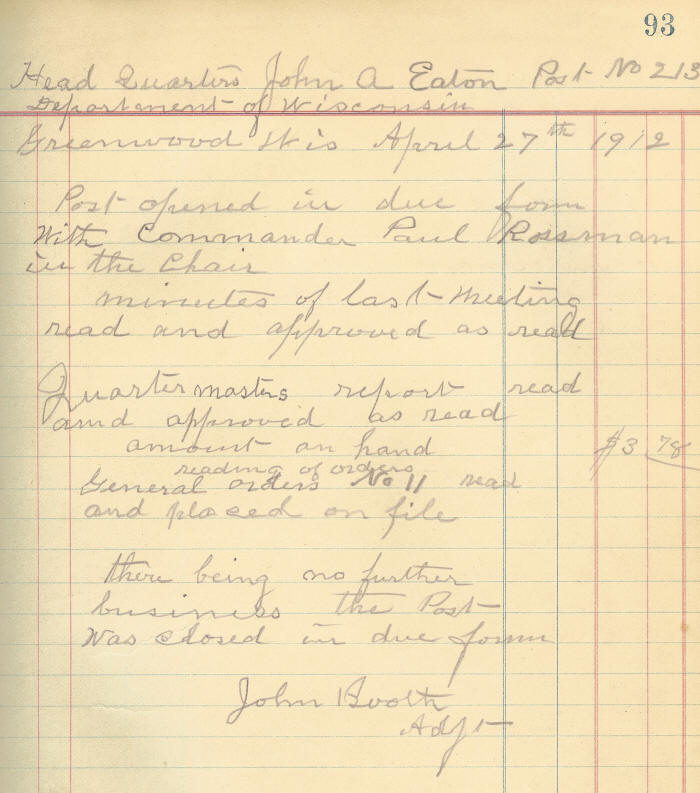 93
Head Quarters John A Eaton Post No 213
Department of Wisconsin
Greenwood Wis April 27th 1912
Post opened in due form
With Commander Paul Rossman
in the Chair
minutes of last Meeting
read and approved as read
Quartermasters report read
and approved as read
amount on hand $3 78
reading of orders
General orders No 11 read
and placed on file
there being no further
business the Post
Was closed in due form
John Booth
Adjt